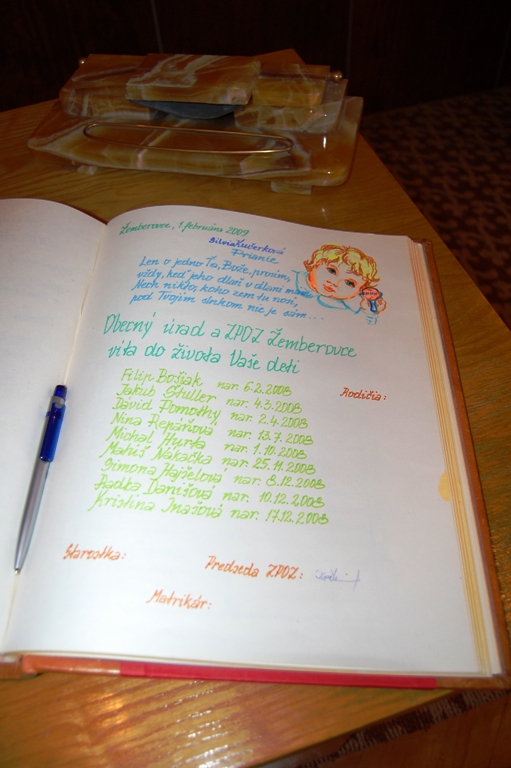 Žemberovce, 1. februára 2009
Silvia Kučerková
Prianie
Len o jedno Ťa, Bože, prosím,
vždy, keď jeho dlaň v dlani mám
Nech nikto, koho zem tu nosí,
pod Tvojím slnkom nie je sám...
Obecný úrad a ZPOZ Žemberovce
víta do života Vaše deti
Rodičia:
Filip Božjak nar. 6.2.2008
Jakub Štuller nar. 4.3.2008
Dávid Pomothy nar. 2.4.2008
Nina Repáňová nar. 13.7.2008
Michal Hurta nar. 1.10.2008
Matúš Nákačka nar. 25.11.2008
Simona Hajšelová nar. 8.12.2008
Radka Danišová nar. 10.12.2008
Kristína Ivašová nar. 17.12.2008
Starostka:
Predseda ZPOZ:
Matrikár: